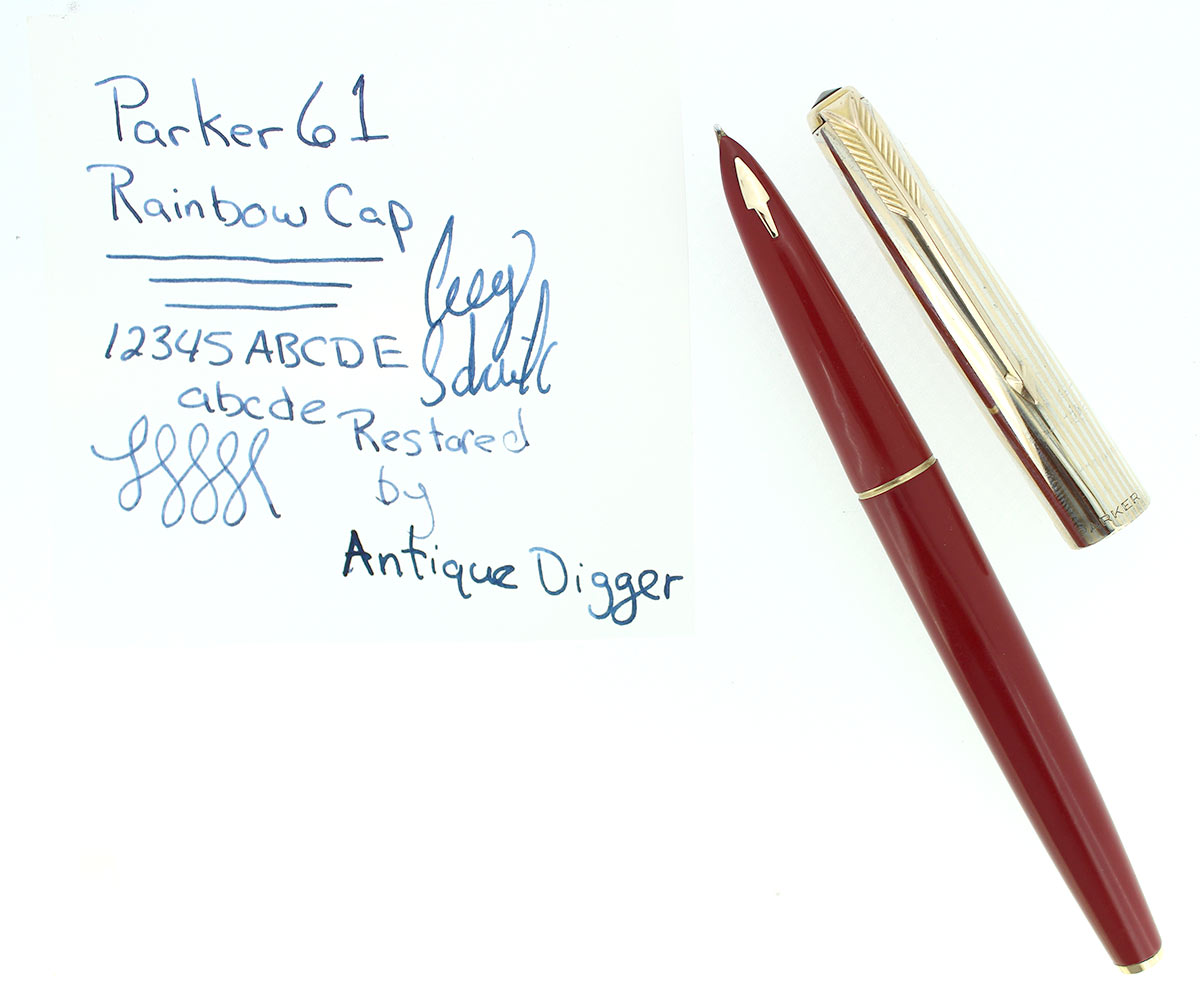 Parker 61
Rainbow Cap
12345 ABCDE
abcde
Restored
by
Antique Digger